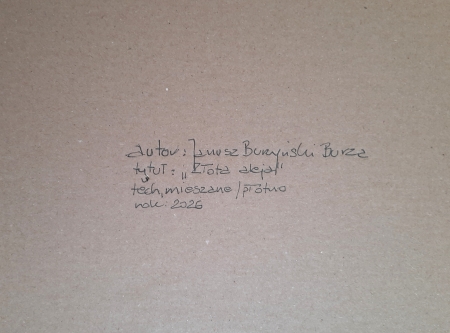 autor: Janusz Burzyński Burza
tytuł: „Złota aleja"
tech. mieszane/płótno
rok: 2026